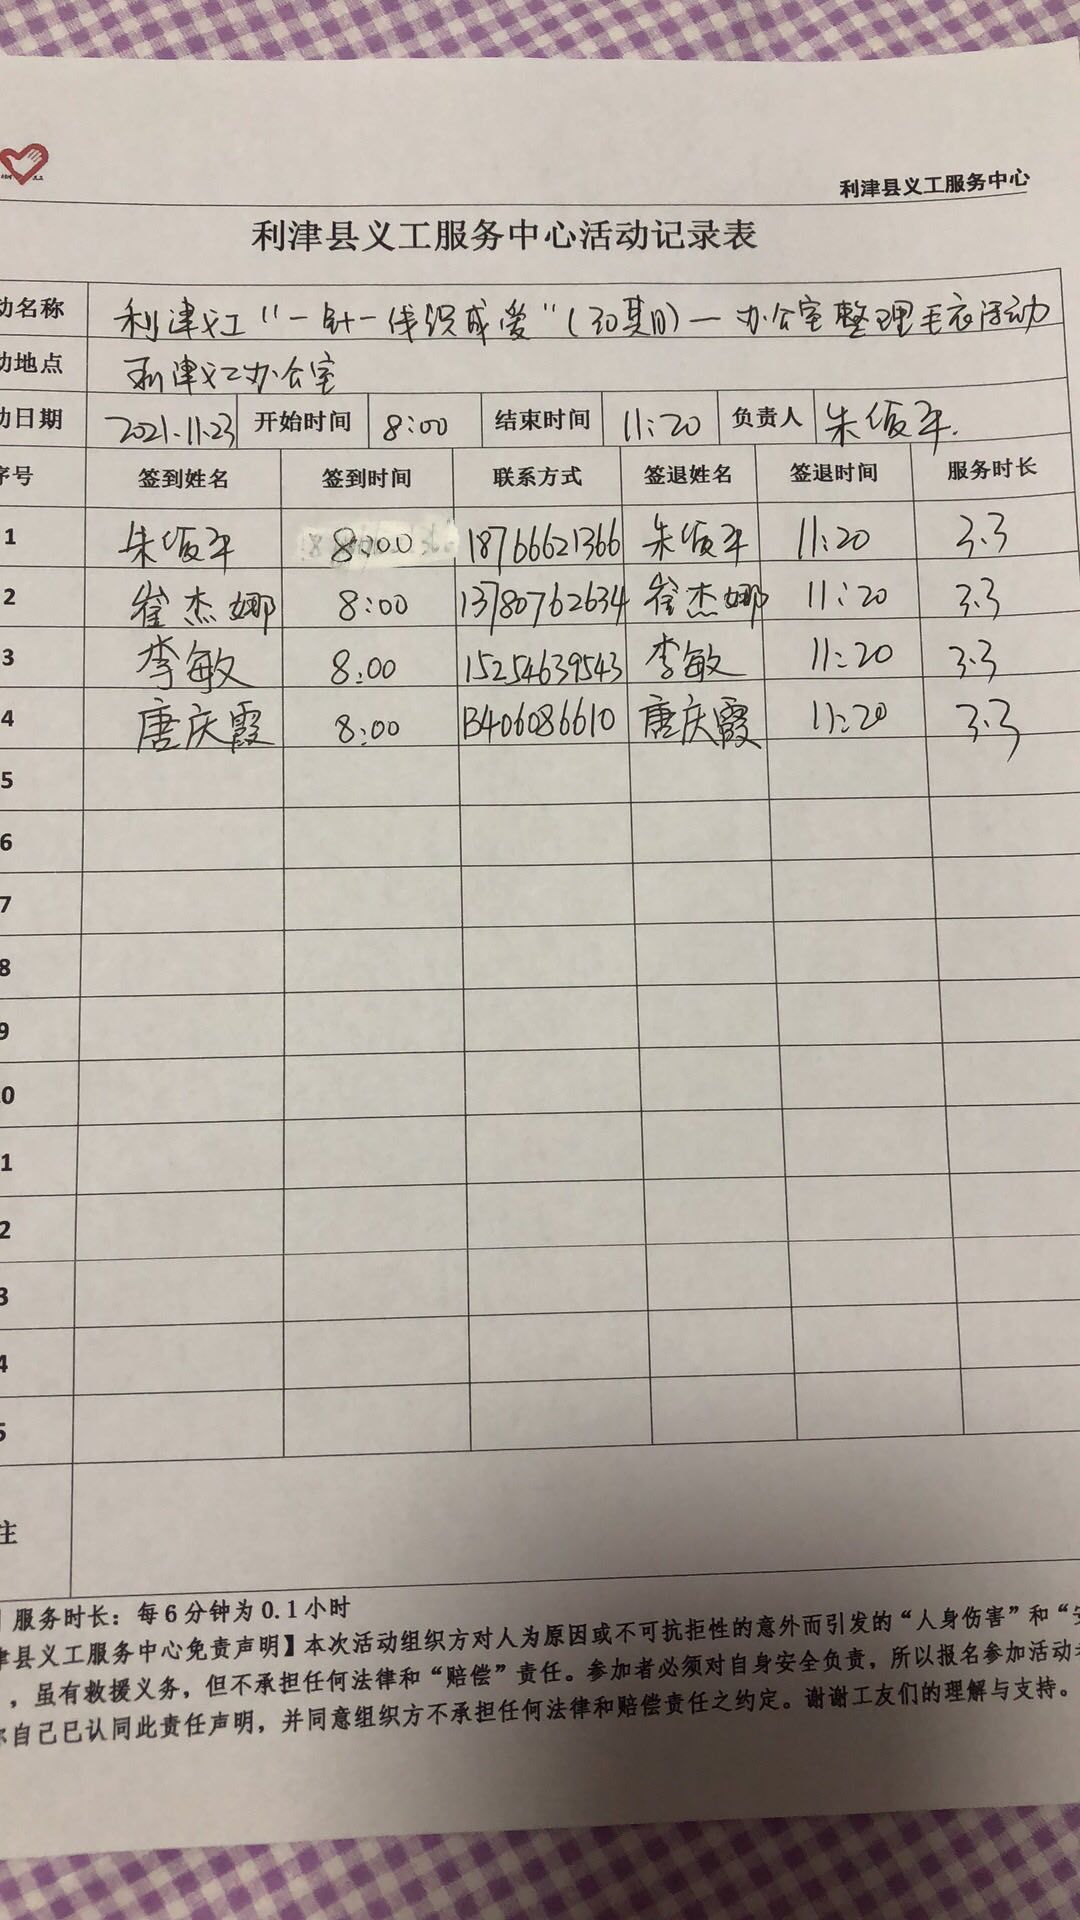 利津县义工服务中心
利津县义工服务中心活动记录表
动名称 利津义工“一针一线织成爱”(30期)—办公室整理毛衣活动
动地点 利津义工办公室
动日期 2021.11.23 开始时间 8:00 结束时间 11:20 负责人 朱
序号 签到姓名 签到时间 联系方式 签退姓名 签退时间 服务时长
1 朱 8:00 18766621366 朱 11:20 3.3
2 崔杰娜 8:00 13780762634 崔杰娜 11:20 3.3
3 李敏 8:00 15254639543 李敏 11:20 3.3
4 唐庆霞 8:00 13406086610 唐庆霞 11:20 3.3
5
6
7
8
9
0
1
2
3
4
5
注
服务时长：每6分钟为0.1小时
津县义工服务中心免责声明】本次活动组织方对人为原因或不可抗拒性的意外而引发的“人身伤害”和“安
，虽有救援义务，但不承担任何法律和“赔偿”责任。参加者必须对自身安全负责，所以报名参加活动者
你自己已认同此责任声明，并同意组织方不承担任何法律和赔偿责任之约定。谢谢工友们的理解与支持。